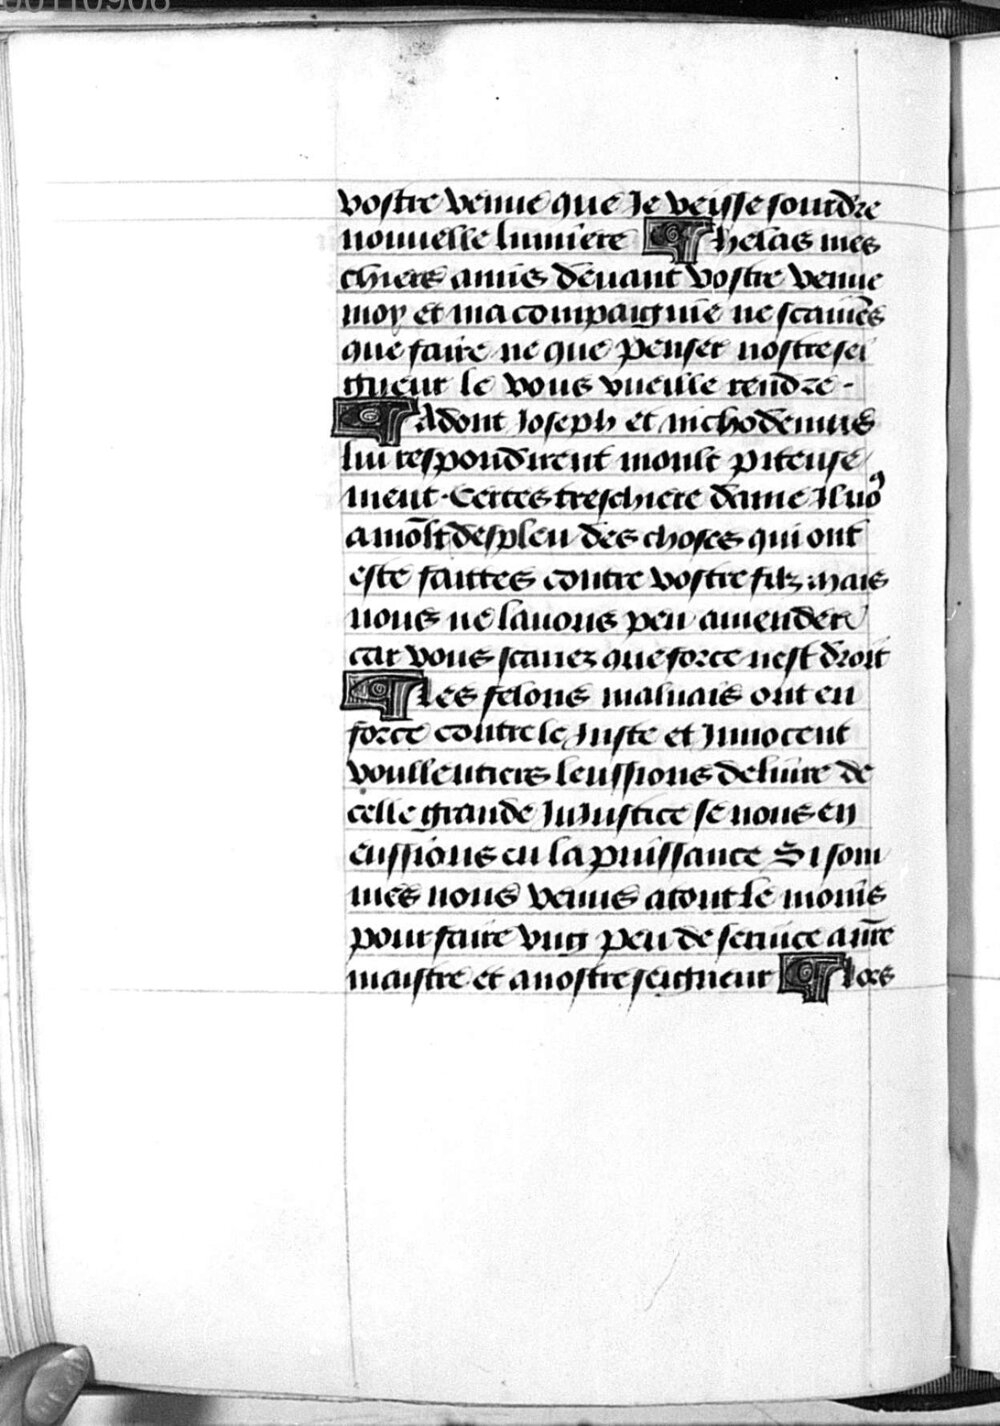 vostre venue que Je veisse sourdre
nouuelle lumiere ¶ helas mes
chiers amis deuant vostre venue
moy et ma compaignie ne scauiēs
que faire ne que penser nostre sei
gneur le vous vueille rendre -
¶ Adont Joseph et nichodemus
lui respondirent moult piteuse
ment · Certes treschiere dame Il uoꝰ
a mōlt despleu des choses qui ont
este faittes contre vostre filz mais
nous ne lauons peu amender
car vous scauez que force nest droit
¶ Les felons mauuais ont eu
force contre le Juste et Innocent
voullentiers leussions deliure de
celle grande InJustice se nous en
eussions eu la puissance Si som
mes nous venus a tout le moins
pour faire vng peu de seruice a nr̄e
maistre et a nostre seigneur ¶ lors